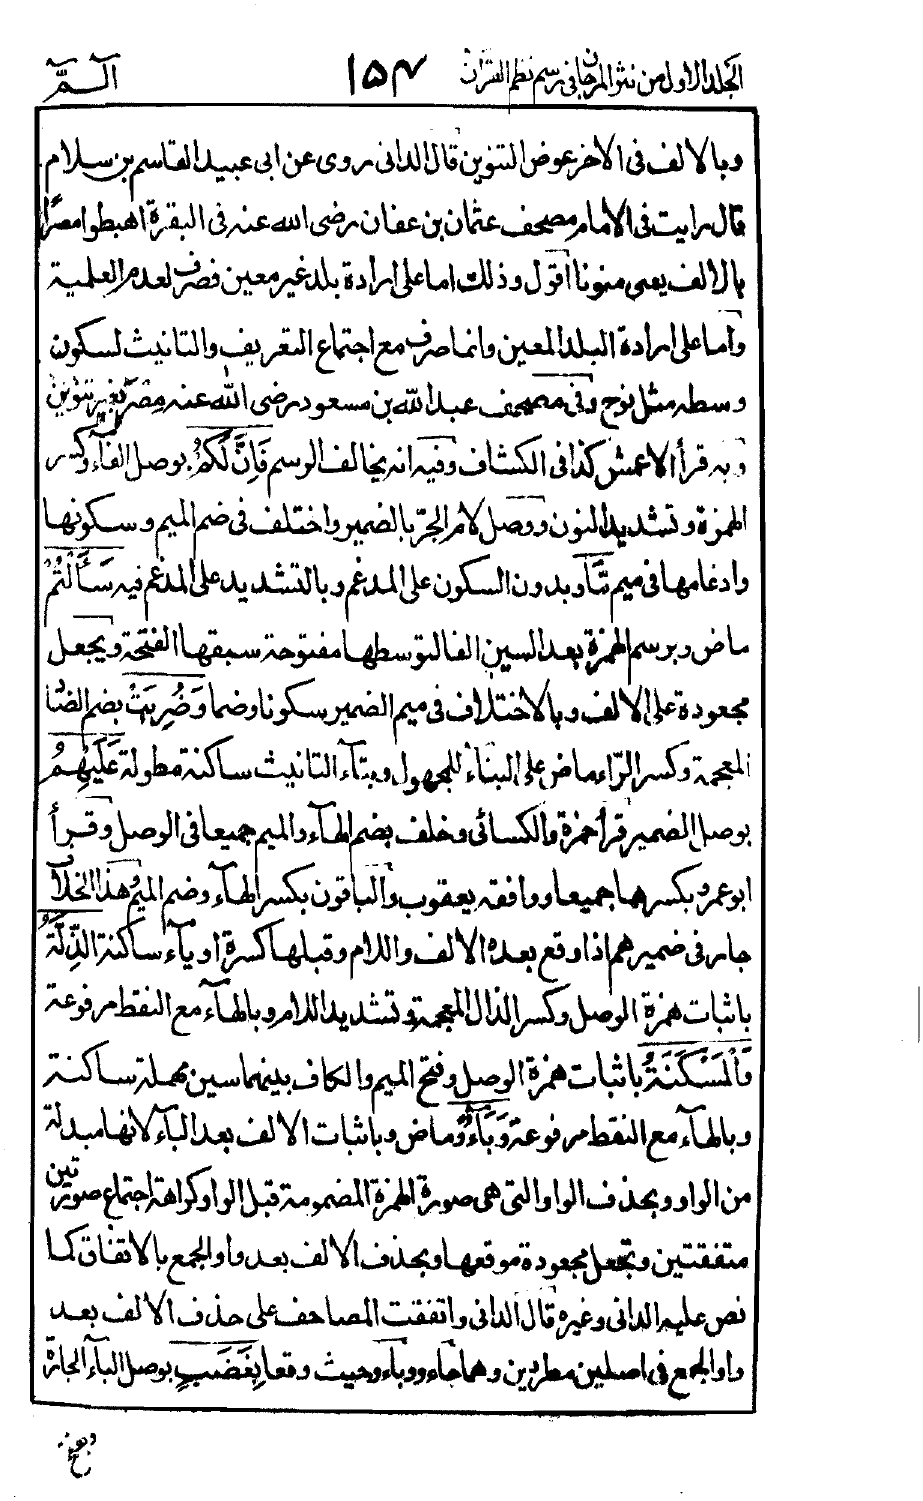 الجلد الاول من نثر المرجان فى رسم نظم القران
١٥٤
الٓمّٓ
وبالالف فى الاخر عوض التنوين قال الدانى روى عن ابى عبيد القاسم بن سلام
قال رايت فى الامام مصحف عثمان بن عفان رضى الله عنه فى البقرة اهبطوا مصرًا
بالالف يعنى منونا اقول وذلك اما على ارادة بلد غير معين فصرف لعدم العلمية
واما على ارادة البلد المعين وانما صرف مع اجتماع التعريف والتانيث لسكون
وسطه مثل نوح وفى مصحف عبد الله بن مسعود رضى الله عنه مِصْرَ بغير تنوين
وبه قرأ الاعمش كذا فى الكشاف وفيه انه يخالف الرسم فَاِنَّ لَكُمْ بوصل الفاء وكسر
الهمزة وتشديد النون ووصل لام الجرّ بالضمير واختلف فى ضم الميم وسكونها
وادغامها فى ميم مَّا وبدون السكون على المدغم وبالتشديد على المدغم فيه سَاَلْتُمْ
ماض وبرسم الهمزة بعد السين الفا لتوسطها مفتوحة سبقها الفتحة ويجعل
مجعودة على الالف وبالاختلاف فى ميم الضمير سكونا وضما وَضُرِبَتْ بضم الضاد
المعجمة وكسر الرّاء ماض على البناء للمجهول وبتاء التانيث ساكنة مطولة عَلَيْهِمُ
بوصل الضمير قرأ حمزة والكسائى وخلف بضم الهاء والميم جميعا فى الوصل وقرأ
ابو عمرو بكسرهما جميعا ووافقه يعقوب والباقون بكسر الهاء وضم الميم وهذا الخلاف
جار فى ضمير هم اذا وقع بعده الالف واللام وقبلها كسرة او ياء ساكنة الذِّلَّةُ
باثبات همزة الوصل وكسر الذال المعجمة وتشديد اللام وبالهاء مع النقط مرفوعة
وَالْمَسْكَنَةُ باثبات همزة الوصل وفتح الميم والكاف بينهما سين مهملة ساكنة
وبالهاء مع النقط مرفوعة وَبَاءُوْ ماض وباثبات الالف بعد الباء لانها مبدلة
من الواو وبحذف الواو التى هى صورة الهمزة المضمومة قبل الواو كراهة اجتماع صورتين
متفقتين وتجعل مجعودة موقعها وبحذف الالف بعد واو الجمع بالاتفاق كما
نص عليه الدانى وغيره قال الدانى واتفقت المصاحف على حذف الالف بعد
واو الجمع فى اصلين مطردين وهما جاءو وباءو حيث وقعا بِغَضَبٍ بوصل الباء الجارة